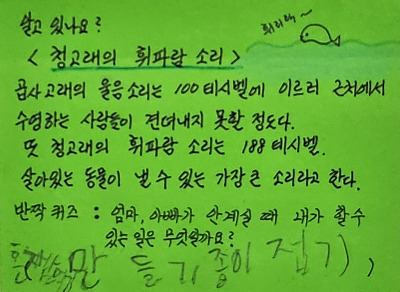 알고 있나요?
휘리릭~
< 청고래의 휘파람 소리 >
곱사고래의 울음소리는 100 테시벨에 이르러 근처에서
수영하는 사람들이 견뎌내지 못할 정도다.
또 청고래의 휘파람 소리는 188 테시벨.
살아있는 동물이 낼 수 있는 가장 큰 소리라고 한다.
반짝 퀴즈 : 엄마, 아빠가 안계실 때 내가 할수
있는 일은 무엇일까요?
만들기종이 접기)